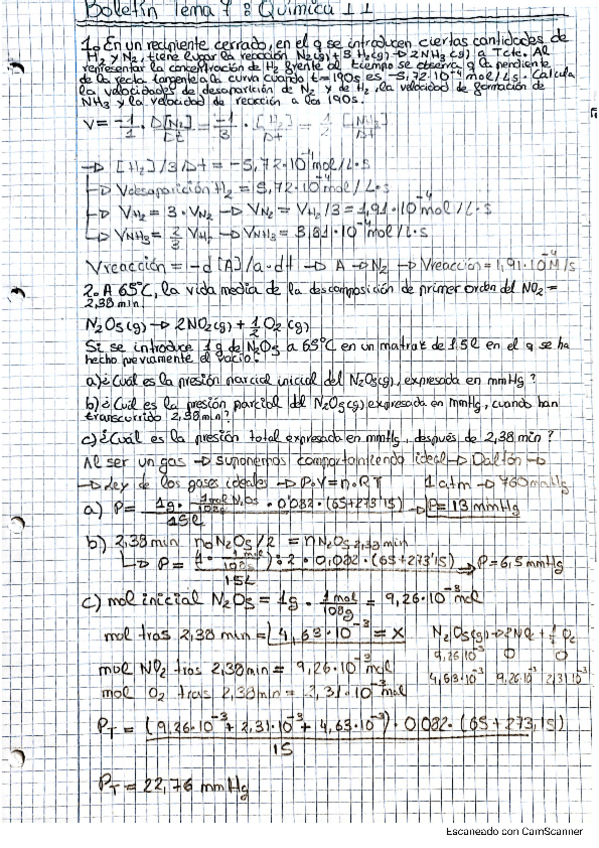 Boletín Tema 7: Química 11
1. En un recipiente cerrado, en el q se introducen ciertas cantidades de
H2 y N2, tiene lugar la reacción N2(g) + 3 H2(g) → 2NH3(g) a Tcte. Al
representar la concentración de H2 frente al tiempo se observa q la pendiente
de la recta tangente a la curva cuando t=190s es -5,72·10^-4 mol/L·s. Calcula
la velocidades de desaparición de N2 y de H2, la velocidad de formación de
NH3 y la velocidad de reacción a los 190s.
V = -1/1 · D[N2]/Dt = -1/3 · [H2]/Dt = 1/2 [NH3]/Dt
→ [H2]/3Dt = -5,72·10^-4 mol/L·s
→ Vdesaparición H2 = 5,72·10^-4 mol/L·s
→ VH2 = 3·VN2 → VN2 = VH2/3 = 1,91·10^-4 mol/L·s
→ VNH3 = 2/3 VH2 → VNH3 = 3,81·10^-4 mol/L·s
Vreacción = -d[A]/a·dt → A → N2 → Vreacción = 1,91·10^-4 M/s
2. A 65°C, la vida media de la descomposición de primer orden del NO2 =
2,38 min.
N2O5(g) → 2NO2(g) + 1/2 O2(g)
Si se introduce 1g de N2O5 a 65°C en un matraz de 15l en el q se ha
hecho previamente el vacío:
a) ¿Cuál es la presión parcial inicial del N2O5(g), expresada en mmHg?
b) ¿Cuál es la presión parcial del N2O5(g) expresada en mmHg, cuando han
transcurrido 2,38 min?
c) ¿Cuál es la presión total expresada en mmHg, después de 2,38 min?
Al ser un gas → suponemos comportamiento ideal → Dalton →
→ Ley de los gases ideales → P·V = n·RT 1 atm → 760 mmHg
a) P = 1g · 1mol N2O5/108g · 0'082 · (65+273'15) / 15l → P = 13 mmHg
b) 2,38 min n0 N2O5/2 = n N2O5 2,38 min
→ P = (1 · 1mol/108g) : 2 · 0,082 · (65+273'15) / 15L → P = 6,5 mmHg
c) mol inicial N2O5 = 1g · 1mol/108g = 9,26·10^-3 mol
mol tras 2,38 min = 4,63·10^-3 = x N2O5(g) → 2NO2 + 1/2 O2
9,26·10^-3 0 0
mol NO2 tras 2,38min = 9,26·10^-3 mol 4,63·10^-3 9,26·10^-3 2,31·10^-3
mol O2 tras 2,38min = 2,31·10^-3 mol
PT = (9,26·10^-3 + 2,31·10^-3 + 4,63·10^-3) · 0'082 · (65+273,15) / 15
PT = 22,76 mmHg
Escaneado con CamScanner